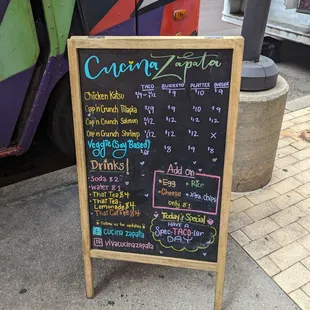 Cucina Zapata
TACO BURRITO PLATTER BURGER
Chicken Katsu $9 $10 $9
Cap'n Crunch Tilapia $9 9 10 9
Cap'n Crunch Salmon $12 12 12
Cap'n Crunch Shrimp $12 $12 12 X
Veggie (Soy Based) $8 8 9 8
Drinks!
Soda $2
Water $1
Thai Tea $4
Thai Tea Lemonade $4
Thai Coffee $4
Add On
Egg Rice
Cheese Pita chips
only $1
Today's Special
HAVE A
Spec-TACO-lar
DAY
Follow us for updates
cucina zapata
vivacucinazapata